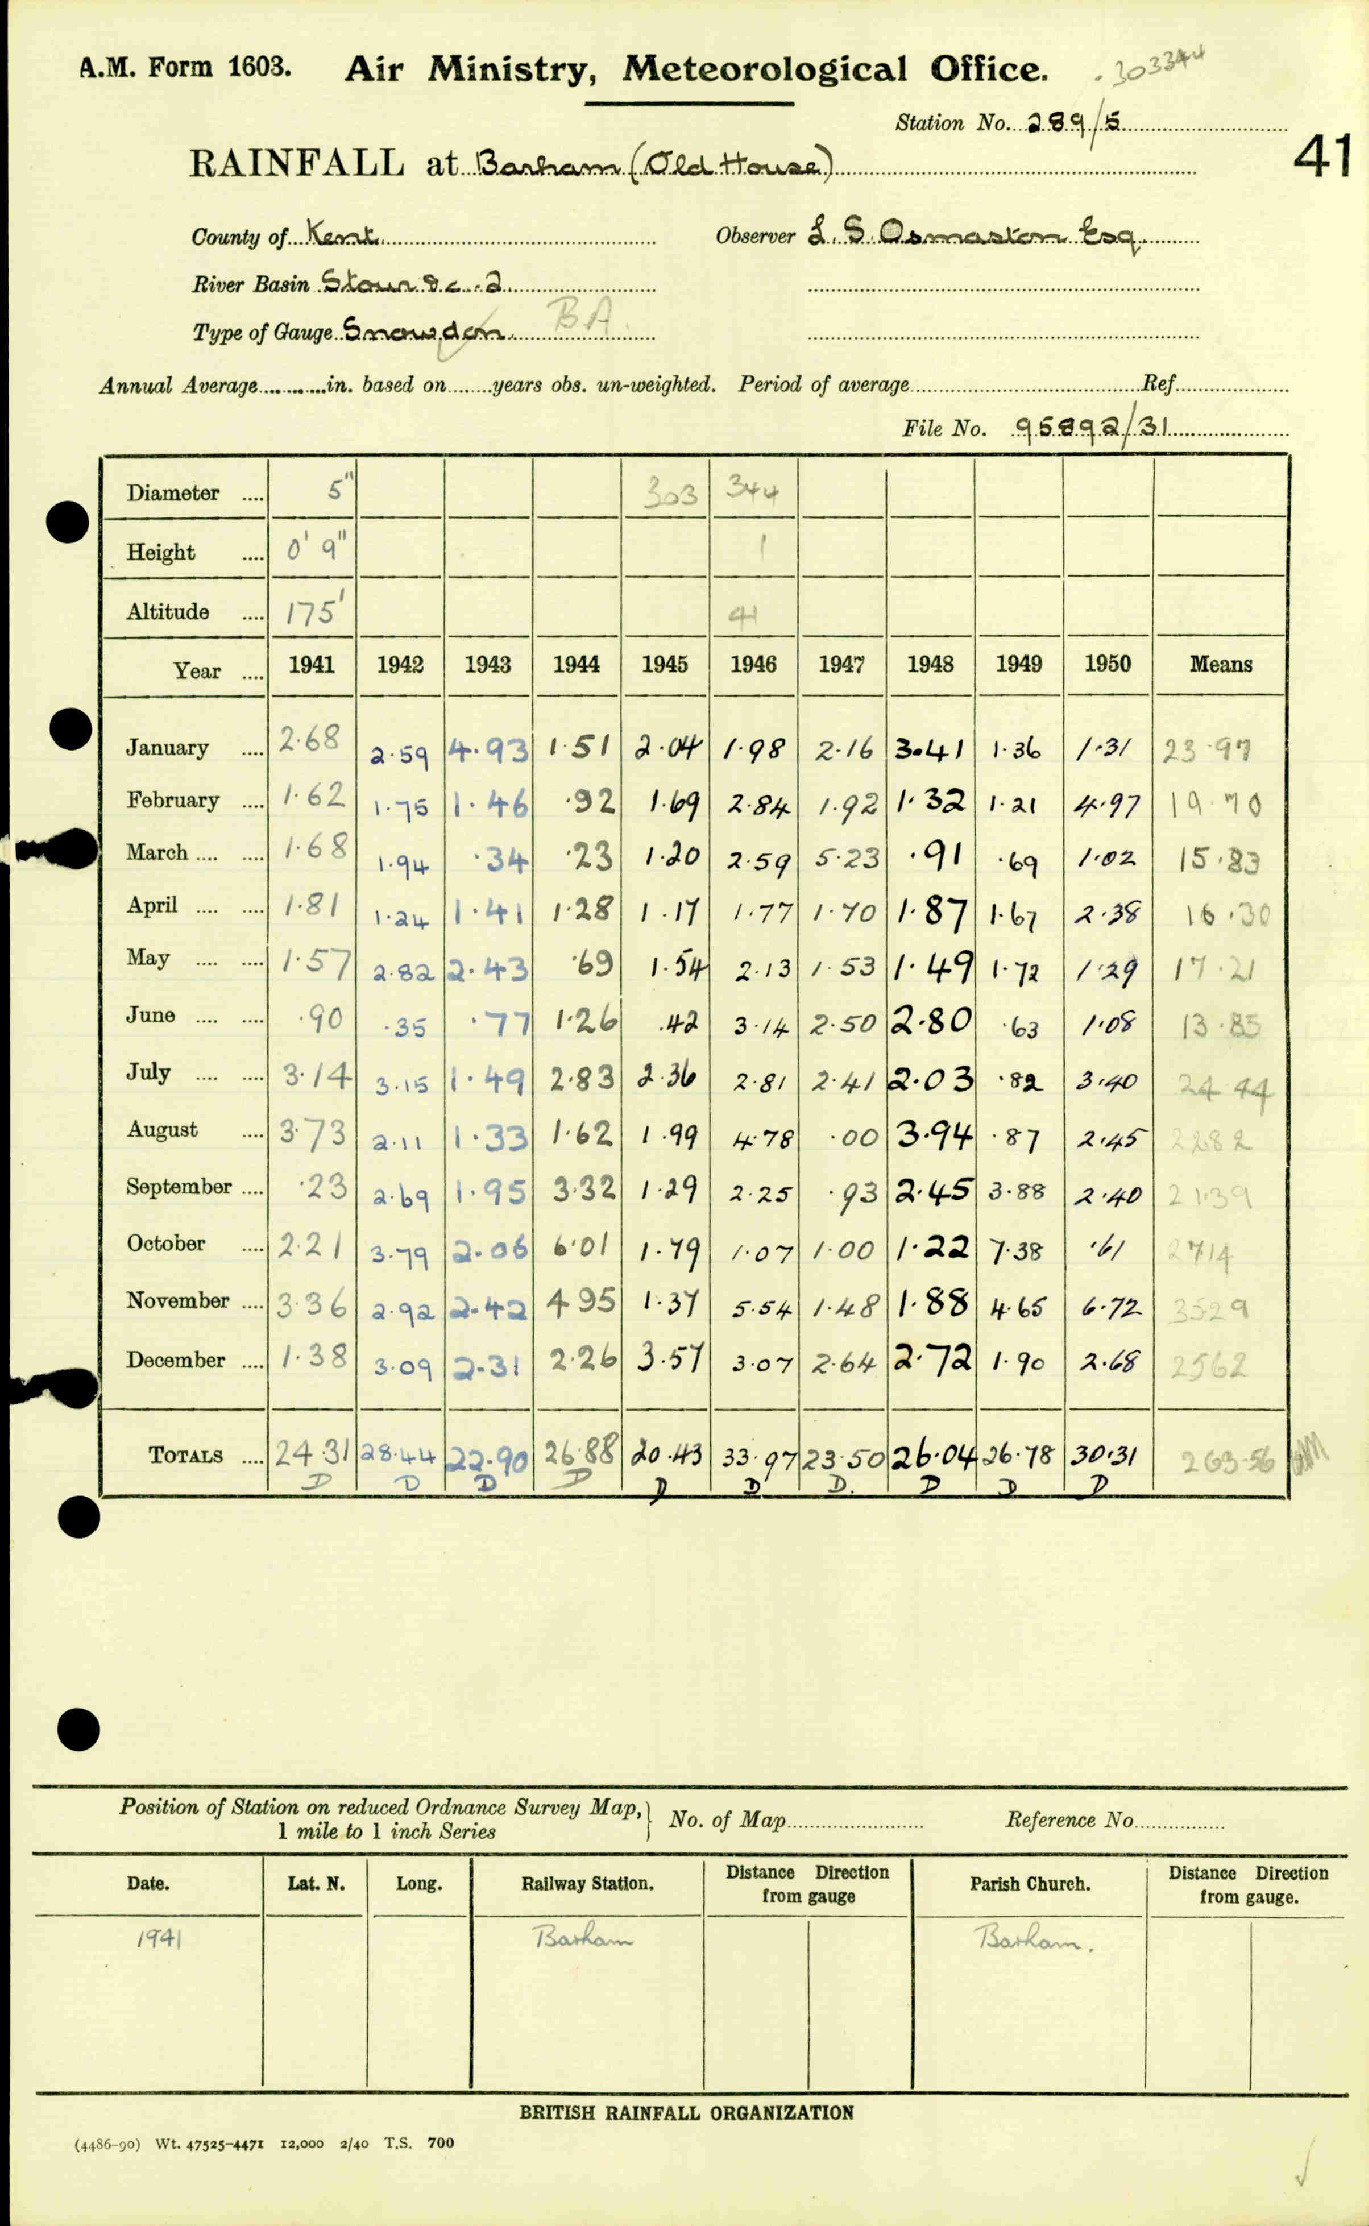 A.M. Form 1603. Air Ministry, Meteorological Office. .303344
Station No. 289/5
41
RAINFALL at Barham (Old House)
County of Kent Observer L. S. Osmaston Esq.
River Basin Stour &c. 2
Type of Gauge Snowdon BA
Annual Average in. based on years obs. un-weighted. Period of average Ref
File No. 95892/31
Diameter 5" 303 344
Height 0' 9" 1
Altitude 175' 41
Year 1941 1942 1943 1944 1945 1946 1947 1948 1949 1950 Means
January 2.68 2.59 4.93 1.51 2.04 1.98 2.16 3.41 1.36 1.31 23.97
February 1.62 1.75 1.46 .92 1.69 2.84 1.92 1.32 1.21 4.97 19.70
March 1.68 1.94 .34 .23 1.20 2.59 5.23 .91 .69 1.02 15.83
April 1.81 1.24 1.41 1.28 1.17 1.77 1.70 1.87 1.67 2.38 16.30
May 1.57 2.82 2.43 .69 1.54 2.13 1.53 1.49 1.72 1.29 17.21
June .90 .35 .77 1.26 .42 3.14 2.50 2.80 .63 1.08 13.85
July 3.14 3.15 1.49 2.83 2.36 2.81 2.41 2.03 .82 3.40 24.44
August 3.73 2.11 1.33 1.62 1.99 4.78 .00 3.94 .87 2.45 2282
September .23 2.69 1.95 3.32 1.29 2.25 .93 2.45 3.88 2.40 21.39
October 2.21 3.79 2.06 6.01 1.79 1.07 1.00 1.22 7.38 .61 2714
November 3.36 2.92 2.42 4.95 1.37 5.54 1.48 1.88 4.65 6.72 3529
December 1.38 3.09 2.31 2.26 3.57 3.07 2.64 2.72 1.90 2.68 2562
TOTALS 24.31 28.44 22.90 26.88 20.43 33.97 23.50 26.04 26.78 30.31 263.56
D D D D D D D. D D D
Position of Station on reduced Ordnance Survey Map, 1 mile to 1 inch Series } No. of Map Reference No.
Date. Lat. N. Long. Railway Station. Distance Direction from gauge Parish Church. Distance Direction from gauge.
1941 Barham Barham.
BRITISH RAINFALL ORGANIZATION
(4486-90) Wt. 47525-4471 12,000 2/40 T.S. 700